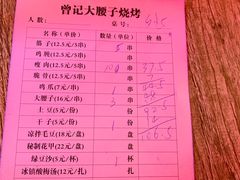 曾记大腰子烧烤
人数： 桌号：
名称(单价) 数量(单位) 价格
筋子(12.5元/5串) 5 串
鸡肫(12.5元/5串) 串
瘦肉(12.5元/5串) 串 37.5
脆骨(12.5元/5串) 串
鸡爪(7元/串) 1 串
大腰子(16元/串) 3 串
土豆(5元/份) 份
干子(5元/份) 1 份
凉拌毛豆(18元/盘) 盘
秘制花甲(22元/盘) 盘
绿豆沙(5元/杯) 1 杯
冰镇酸梅汤(12元/扎) 扎